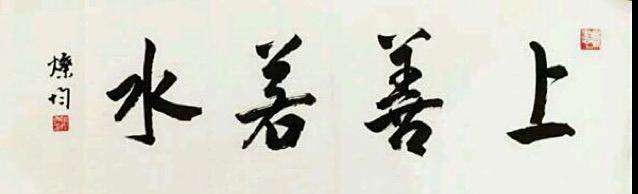 上善若水
燦均